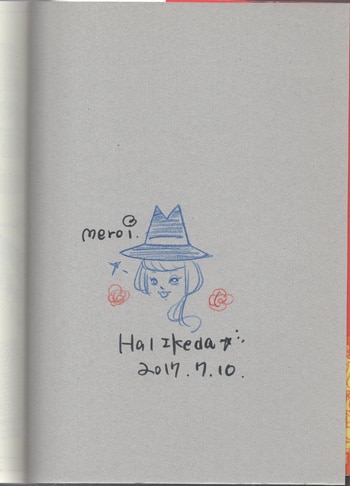 meroi.
Hal Ikeda
2017.7.10.